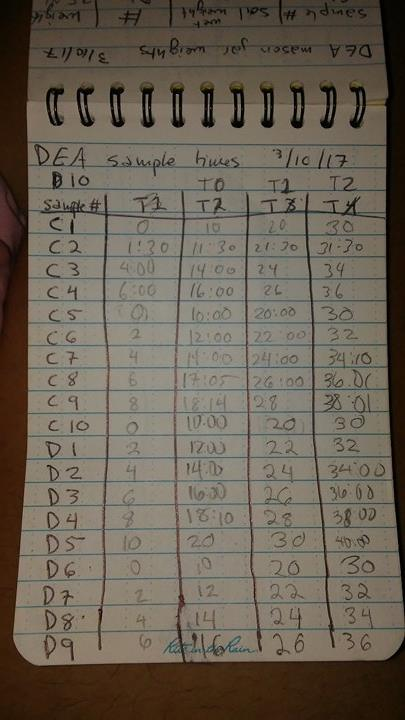 Sample # | soil weight | #
wet
DEA mason jar weights 3/10/17
DEA sample times 3/10/17
D10 T0 T1 T2
Sample # T1 T2 T3 T4
C1 0 10 20 30
C2 1:30 11:30 21:30 31:30
C3 4:00 14:00 24 34
C4 6:00 16:00 26 36
C5 0 10:00 20:00 30
C6 2 12:00 22:00 32
C7 4 14:00 24:00 34:10
C8 6 17:05 26:00 36:01
C9 8 18:14 28 38:01
C10 0 10:00 20 30
D1 2 12:00 22 32
D2 4 14:00 24 34:00
D3 6 16:00 26 36:00
D4 8 18:10 28 38:00
D5 10 20 30 40:00
D6 0 10 20 30
D7 2 12 22 32
D8 4 14 24 34
D9 6 16 26 36